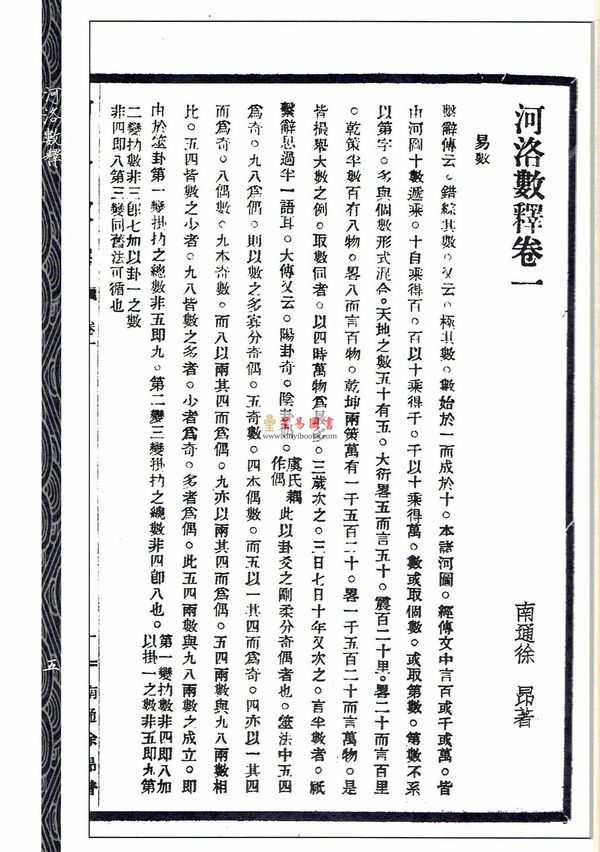 河洛數釋卷一
南通徐昂著
易數
繫辭傳云。錯綜其數。又云。極其數。數始於一而成於十。本諸河圖。經傳文中言百或千或萬。皆
由河圖十數遞乘。十自乘得百。百以十乘得千。千以十乘得萬。數或取個數。或取第數。第數不系
以第字。多與個數形式混合。天地之數五十有五。大衍畧五而言五十。震百二十里。畧二十而言百里
。乾策半數百有八物。畧八而言百物。乾坤兩策萬有一千五百二十。畧一千五百二十而言萬物。是
皆損舉大數之例。取數同者。以四時萬物爲最多。三歲次之。三日七日十年又次之。言半數者。祇
繫辭思過半一語耳。大傳又云。陽卦奇。陰卦耦。虞氏耦作偶此以卦爻之剛柔分奇偶者也。筮法中五四
爲奇。九八爲偶。則以數之多寡分奇偶。五奇數。四本偶數。而五以一其四而爲奇。四亦以一其四
而爲奇。八偶數。九本奇數。而八以兩其四而爲偶。九亦以兩其四而爲偶。五四兩數與九八兩數相
比。五四皆數之少者。九八皆數之多者。少者爲奇。多者爲偶。此五四兩數與九八兩數之成立。即
由於筮卦第一變掛扐之總數非五即九。第二變三變掛扐之總數非四即八也。第一變扐數非四即八加以掛一之數非五即九第
二變扐數非三即七加以卦一之數非四即八第三變同舊法可循也
卷一
南通徐昂著
河洛數釋
五
易圖書
www.kinyibooks.com